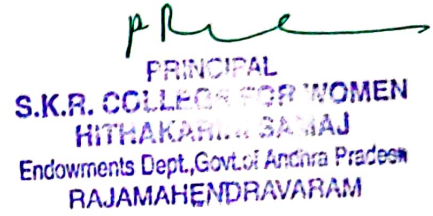 PRINCIPAL
S.K.R. COLLEGE FOR WOMEN
HITHAKARINI SAMAJ
Endowments Dept.,Govt.of Andhra Pradesh
RAJAMAHENDRAVARAM